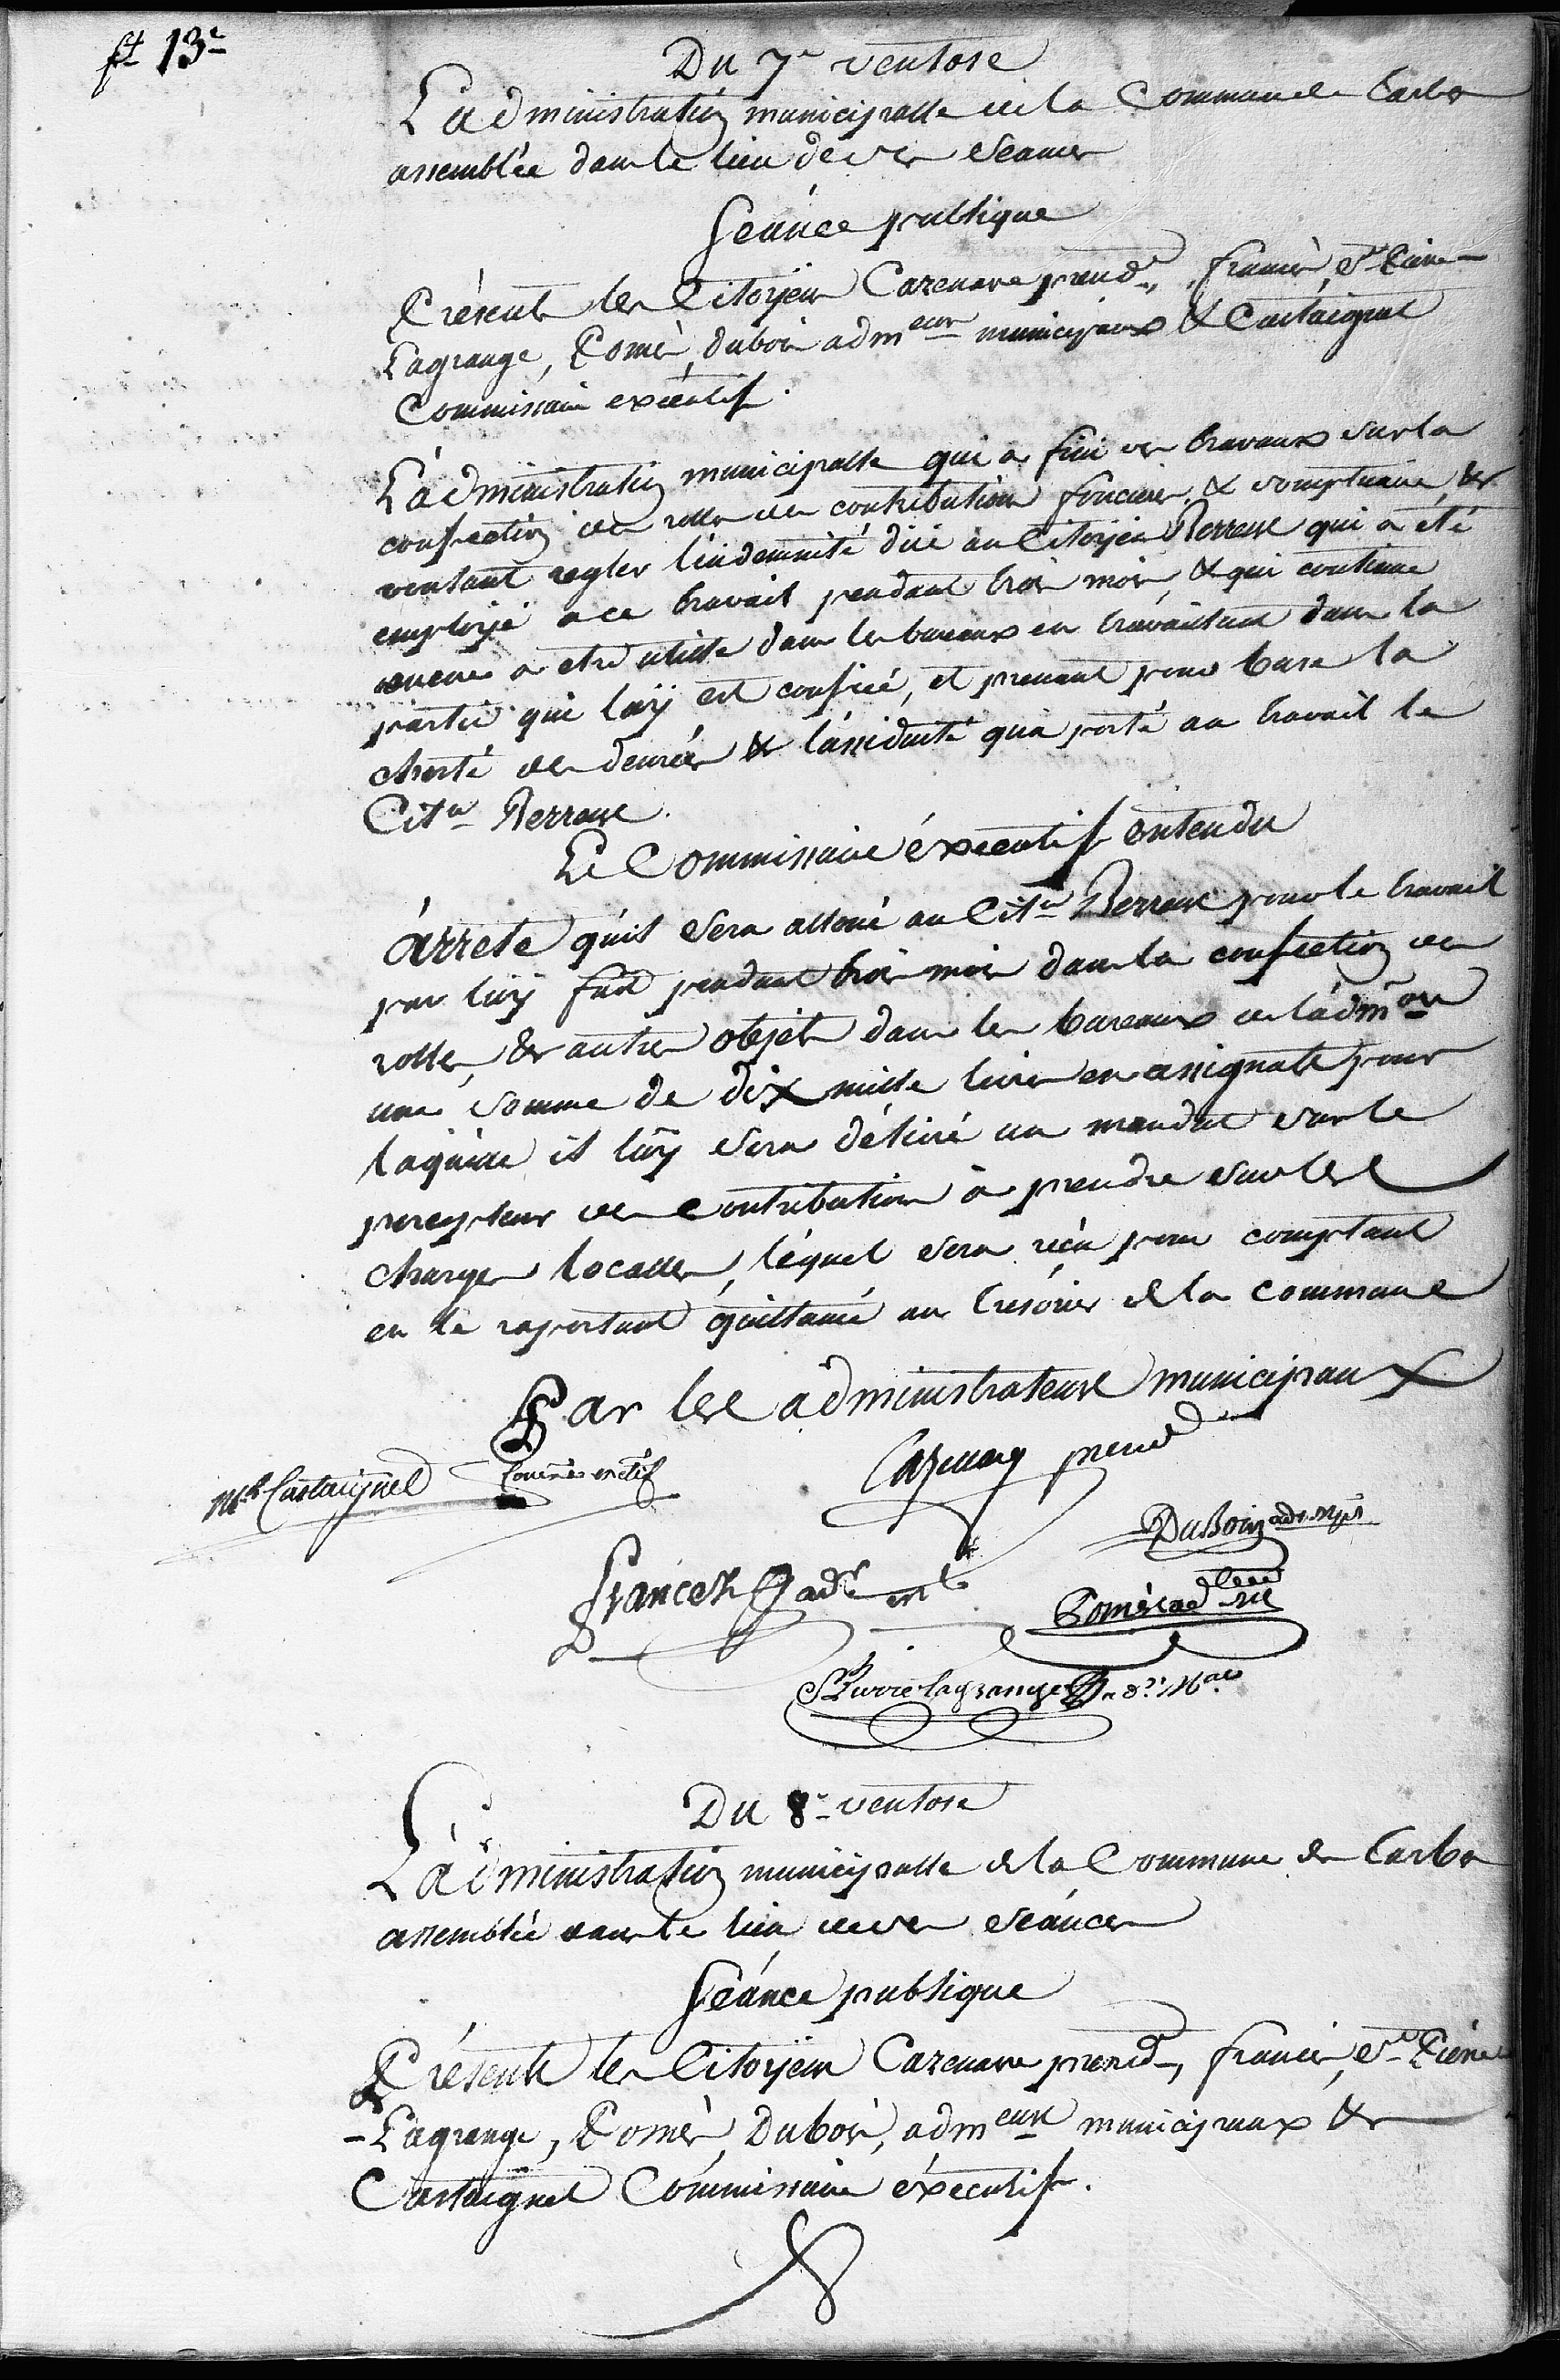 ft 13e
Du 7e ventose
L'administration municipalle de la Commune de Tarbes
assemblée dans le lieu de ses Seances
Seánce publique
Présents les Citoÿens Cazenave presdt, francés, St Pierre
Lagrange, Pomés, dubois admeurs municipaux & Castaignet
Commissaire exécutif.
L'administration municipalle qui a fini ses travaux sur la
confection des rolles des contributions foncieres & somptuaire, &
voulant regler l'indemnité düe au Citoÿen Berreut qui a été
emploÿé a ce travail pendant trois mois, & qui continue
encore a etre utille dans les bureaux en travaillant dans la
partie qui luÿ est confiée, et prenant pour base la
cherté des denrées & l'assiduité qu'a porté au travail le
Citn Berreut.
Le Commissaire éxecutif entendu
árrete qu'il Sera alloué au Citn Berreut pour le travail
par luÿ fait pendant trois mois dans la confection des
rolles, & autres objets dans les bureaux de l'admon
une Somme de dix mille livres en assignats pour
laquelle il luÿ Sera délivré un mandat sur le
percepteur des Contributions à prendre Sur les
charges localles, léquel Sera réçu pour comptant
en le raportant quittancé au trésorier de la commune
Par les administrateurs municipaux
Mel Castaignet Commre exctif
Cazenave presdt
DuBois adr mpl
francez adr ml
Pomés adteur ml
St Pierre lagrange adr Mal
Du 8e ventose
L'administration municipalle de la Commune de Tarbes
assemblée dans le lieu de ses Séánces
Séánce publique
Présents les Citoÿens Cazenave presidt, francés, St Pierre
-Lagrange, Pomés, Dubois, admeurs municipaux &
Castaignet Commissaire éxecutif.